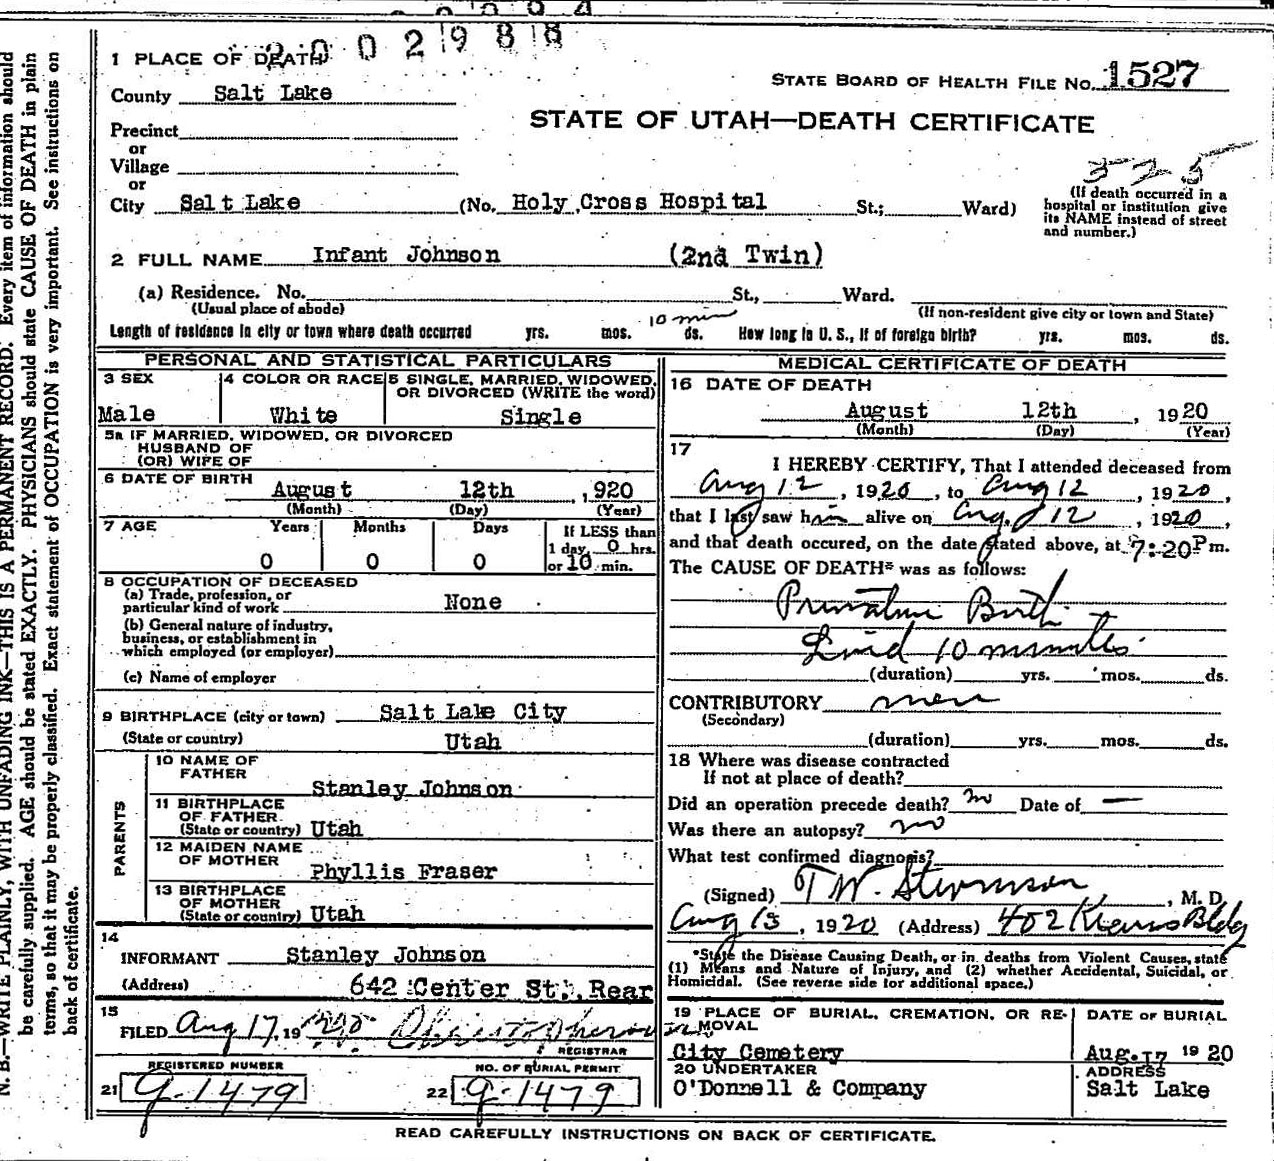 2 0 0 2 9 8 8
1 PLACE OF DEATH
STATE BOARD OF HEALTH FILE NO. 1527
County Salt Lake
STATE OF UTAH—DEATH CERTIFICATE
Precinct
or
Village
or
325
City Salt Lake (No. Holy Cross Hospital St.; Ward)
(If death occurred in a
hospital or institution give
its NAME instead of street
and number.)
2 FULL NAME Infant Johnson (2nd Twin)
(a) Residence. No. St., Ward.
(Usual place of abode) (If non-resident give city or town and State)
Length of residence in city or town where death occurred yrs. mos. 10 min ds. How long in U. S., if of foreign birth? yrs. mos. ds.
PERSONAL AND STATISTICAL PARTICULARS
3 SEX 4 COLOR OR RACE 5 SINGLE, MARRIED, WIDOWED,
OR DIVORCED (WRITE the word)
Male White Single
5a IF MARRIED, WIDOWED, OR DIVORCED
HUSBAND OF
(OR) WIFE OF
6 DATE OF BIRTH August 12th , 920
(Month) (Day) (Year)
7 AGE Years Months Days If LESS than
1 day, 0 hrs.
0 0 0 or 10 min.
8 OCCUPATION OF DECEASED
(a) Trade, profession, or
particular kind of work None
(b) General nature of industry,
business, or establishment in
which employed (or employer)
(c) Name of employer
9 BIRTHPLACE (city or town) Salt Lake City
(State or country) Utah
PARENTS
10 NAME OF
FATHER
Stanley Johnson
11 BIRTHPLACE
OF FATHER
(State or country) Utah
12 MAIDEN NAME
OF MOTHER
Phyllis Fraser
13 BIRTHPLACE
OF MOTHER
(State or country) Utah
14
INFORMANT Stanley Johnson
(Address) 642 Center St., Rear
15
FILED Aug 17, 1920
REGISTRAR
REGISTERED NUMBER NO. OF BURIAL PERMIT
21 G-1479 22 G-1479
MEDICAL CERTIFICATE OF DEATH
16 DATE OF DEATH
August 12th , 1920
(Month) (Day) (Year)
17
I HEREBY CERTIFY, That I attended deceased from
Aug 12 , 1920 , to Aug 12 , 1920 ,
that I last saw him alive on Aug. 12 , 1920 ,
and that death occured, on the date stated above, at 7:20P m.
The CAUSE OF DEATH* was as follows:
Premature Birth
Lived 10 minutes
(duration) yrs. mos. ds.
CONTRIBUTORY
(Secondary)
(duration) yrs. mos. ds.
18 Where was disease contracted
If not at place of death?
Did an operation precede death? no Date of —
Was there an autopsy? no
What test confirmed diagnosis?
(Signed) T W. Stevenson , M. D.
Aug 13 , 1920 (Address) 402 Kearns Bldg
*State the Disease Causing Death, or in deaths from Violent Causes, state
(1) Means and Nature of Injury, and (2) whether Accidental, Suicidal, or
Homicidal. (See reverse side for additional space.)
19 PLACE OF BURIAL, CREMATION, OR RE-
MOVAL
DATE OF BURIAL
City Cemetery Aug. 17 19 20
20 UNDERTAKER ADDRESS
O'Donnell & Company Salt Lake
READ CAREFULLY INSTRUCTIONS ON BACK OF CERTIFICATE.
N. B.—WRITE PLAINLY, WITH UNFADING INK—THIS IS A PERMANENT RECORD. Every item of information should
be carefully supplied. AGE should be stated EXACTLY. PHYSICIANS should state CAUSE OF DEATH in plain
terms, so that it may be properly classified. Exact statement of OCCUPATION is very important. See instructions on
back of certificate.